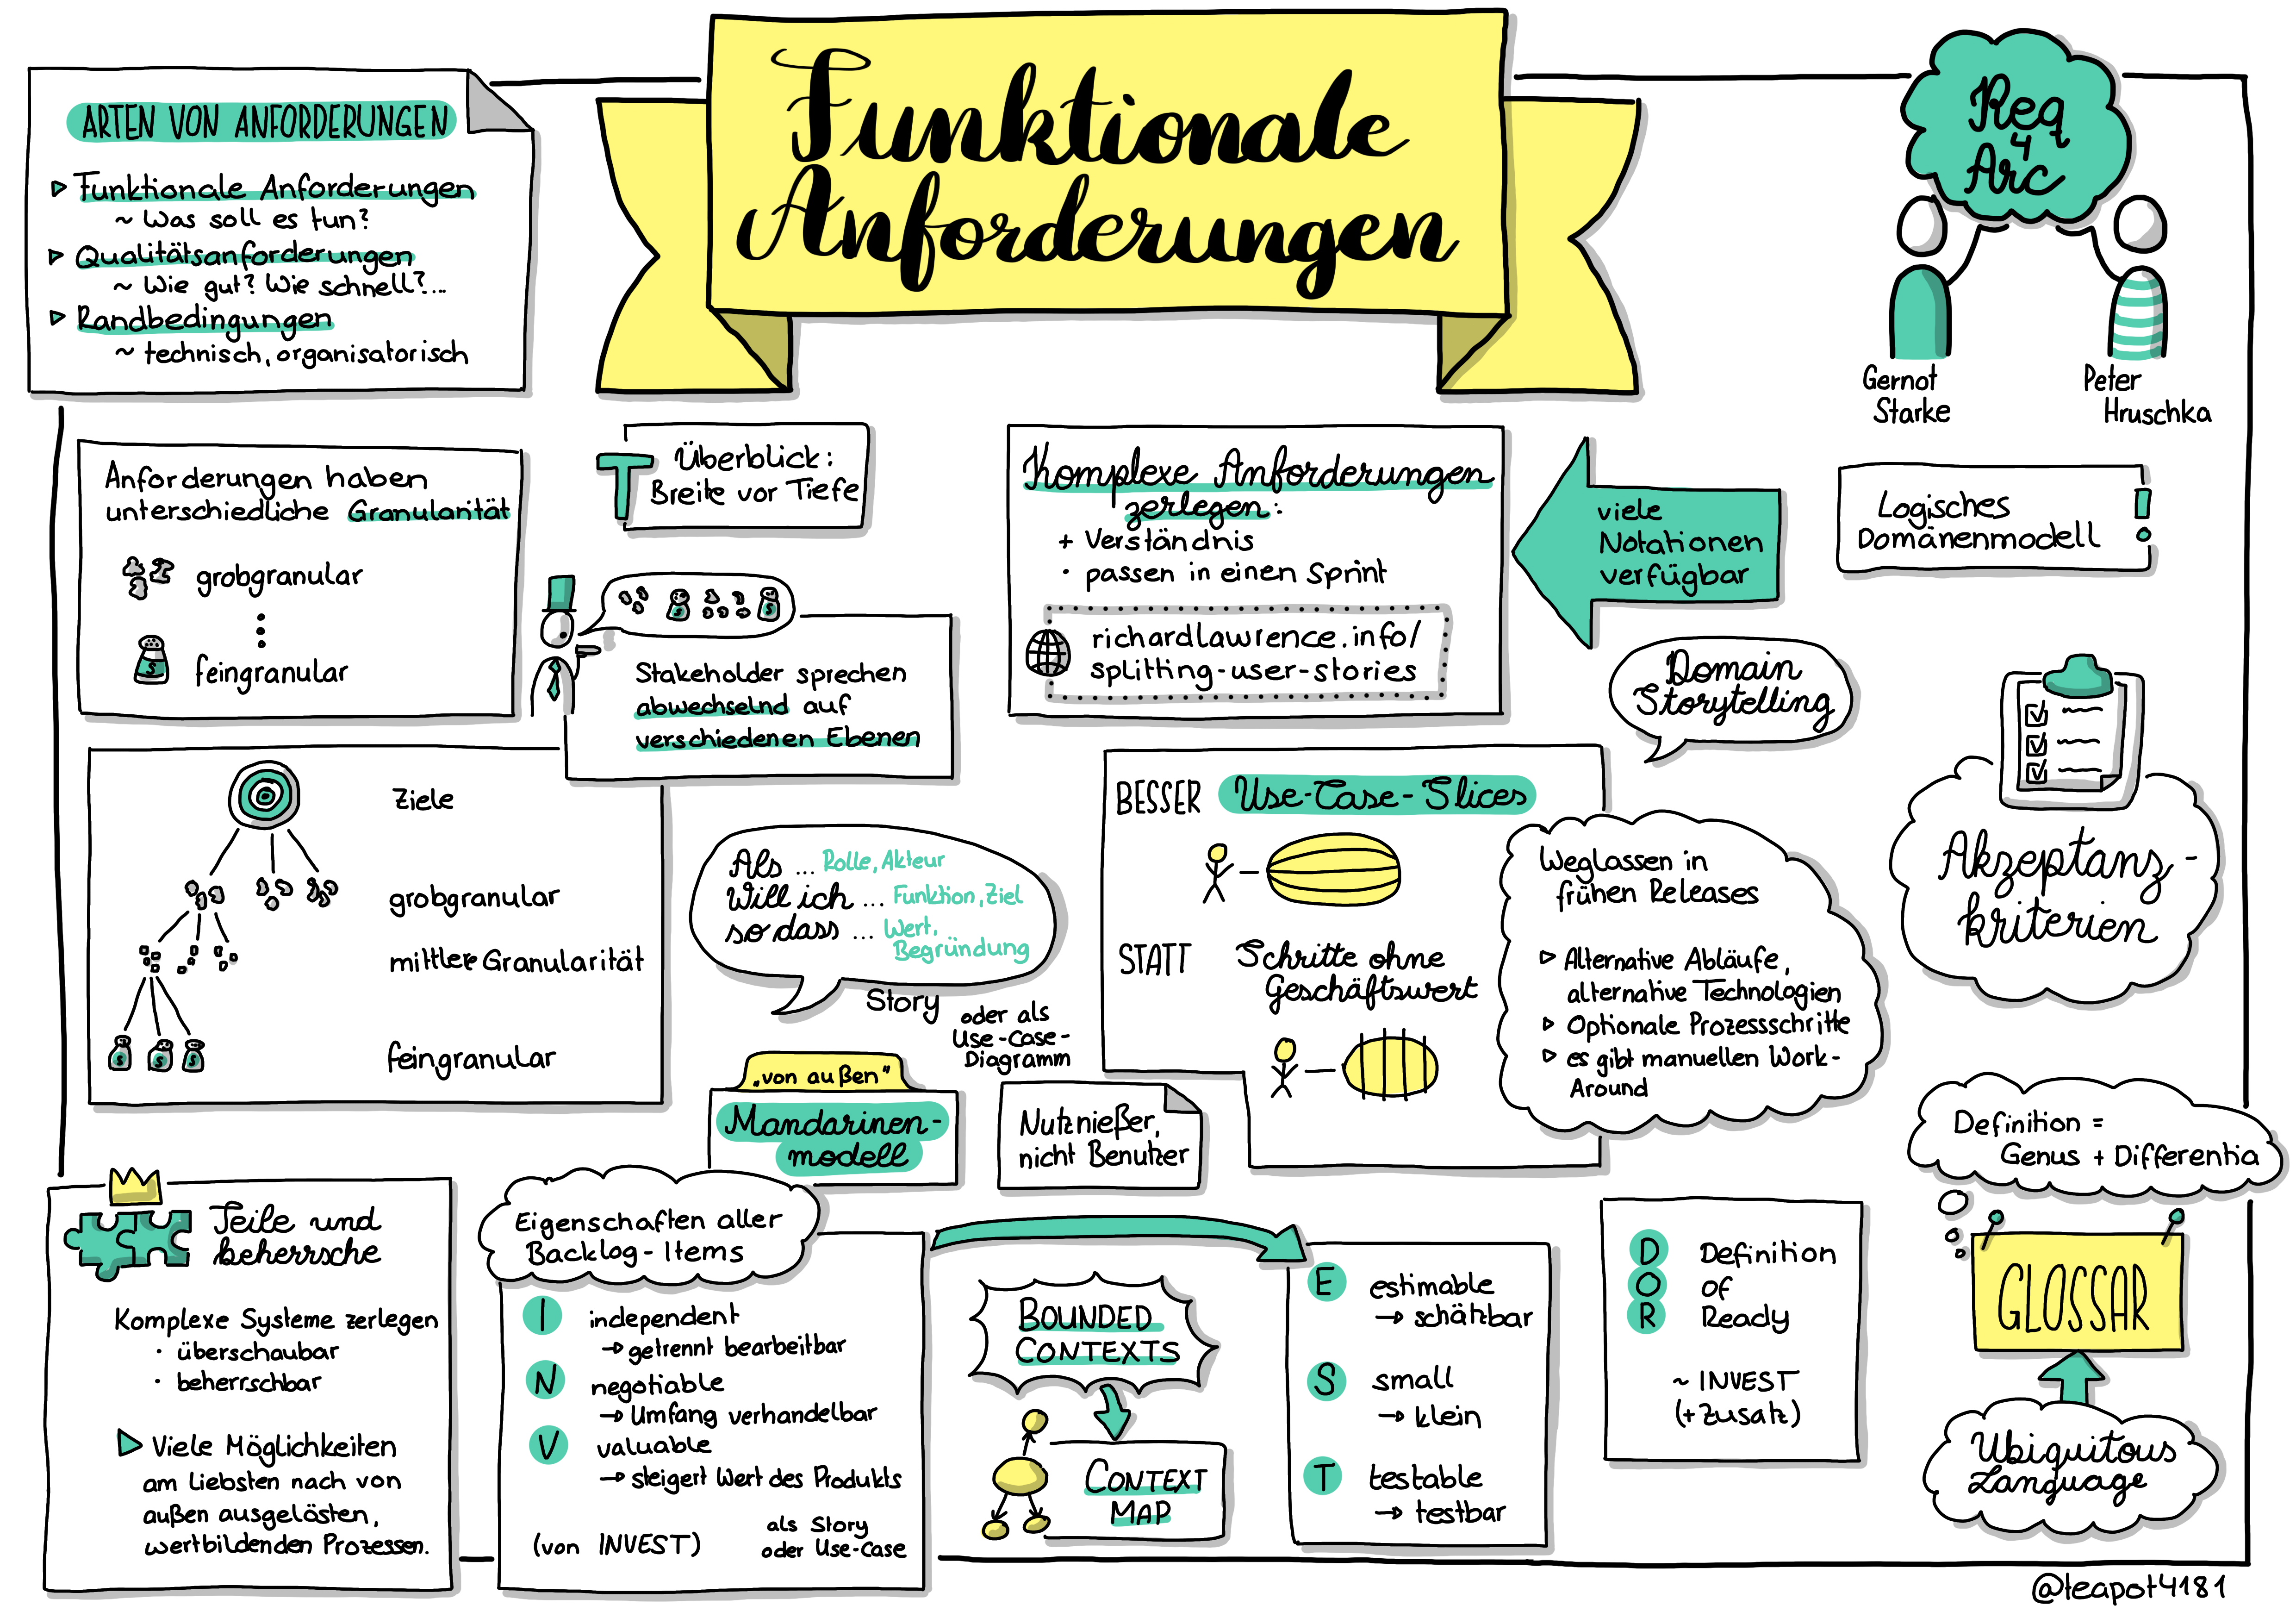 Funktionale
Anforderungen
ARTEN VON ANFORDERUNGEN
Funktionale Anforderungen
~ Was soll es tun?
Qualitätsanforderungen
~ Wie gut? Wie schnell?...
Randbedingungen
~ technisch, organisatorisch
Req
4
Arc
Gernot
Starke
Peter
Hruschka
Anforderungen haben
unterschiedliche Granularität
grobgranular
S
feingranular
T
Überblick:
Breite vor Tiefe
S
S
Stakeholder sprechen
abwechselnd auf
verschiedenen Ebenen
Komplexe Anforderungen
zerlegen:
+ Verständnis
· passen in einen Sprint
richardlawrence.info/
splitting-user-stories
viele
Notationen
verfügbar
Logisches
Domänenmodell
!
Domain
Storytelling
Akzeptanz-
kriterien
Ziele
grobgranular
mittlere Granularität
S
S
S
feingranular
Als ... Rolle, Akteur
Will ich ... Funktion, Ziel
so dass ... Wert,
Begründung
Story
oder als
Use-Case-
Diagramm
BESSER Use-Case-Slices
STATT Schritte ohne
Geschäftswert
Weglassen in
frühen Releases
Alternative Abläufe,
alternative Technologien
Optionale Prozessschritte
es gibt manuellen Work-
Around
„von außen"
Mandarinen-
modell
Nutznießer,
nicht Benutzer
Definition =
Genus + Differentia
GLOSSAR
Ubiquitous
Language
Teile und
beherrsche
Komplexe Systeme zerlegen
· überschaubar
· beherrschbar
Viele Möglichkeiten
am Liebsten nach von
außen ausgelösten,
wertbildenden Prozessen.
Eigenschaften aller
Backlog-Items
I independent
→ getrennt bearbeitbar
N negotiable
→ Umfang verhandelbar
V valuable
→ steigert Wert des Produkts
(von INVEST)
als Story
oder Use-Case
BOUNDED
CONTEXTS
CONTEXT
MAP
E estimable
→ schätzbar
S small
→ klein
T testable
→ testbar
D Definition
O of
R Ready
~ INVEST
(+ Zusatz)
@teapot4181